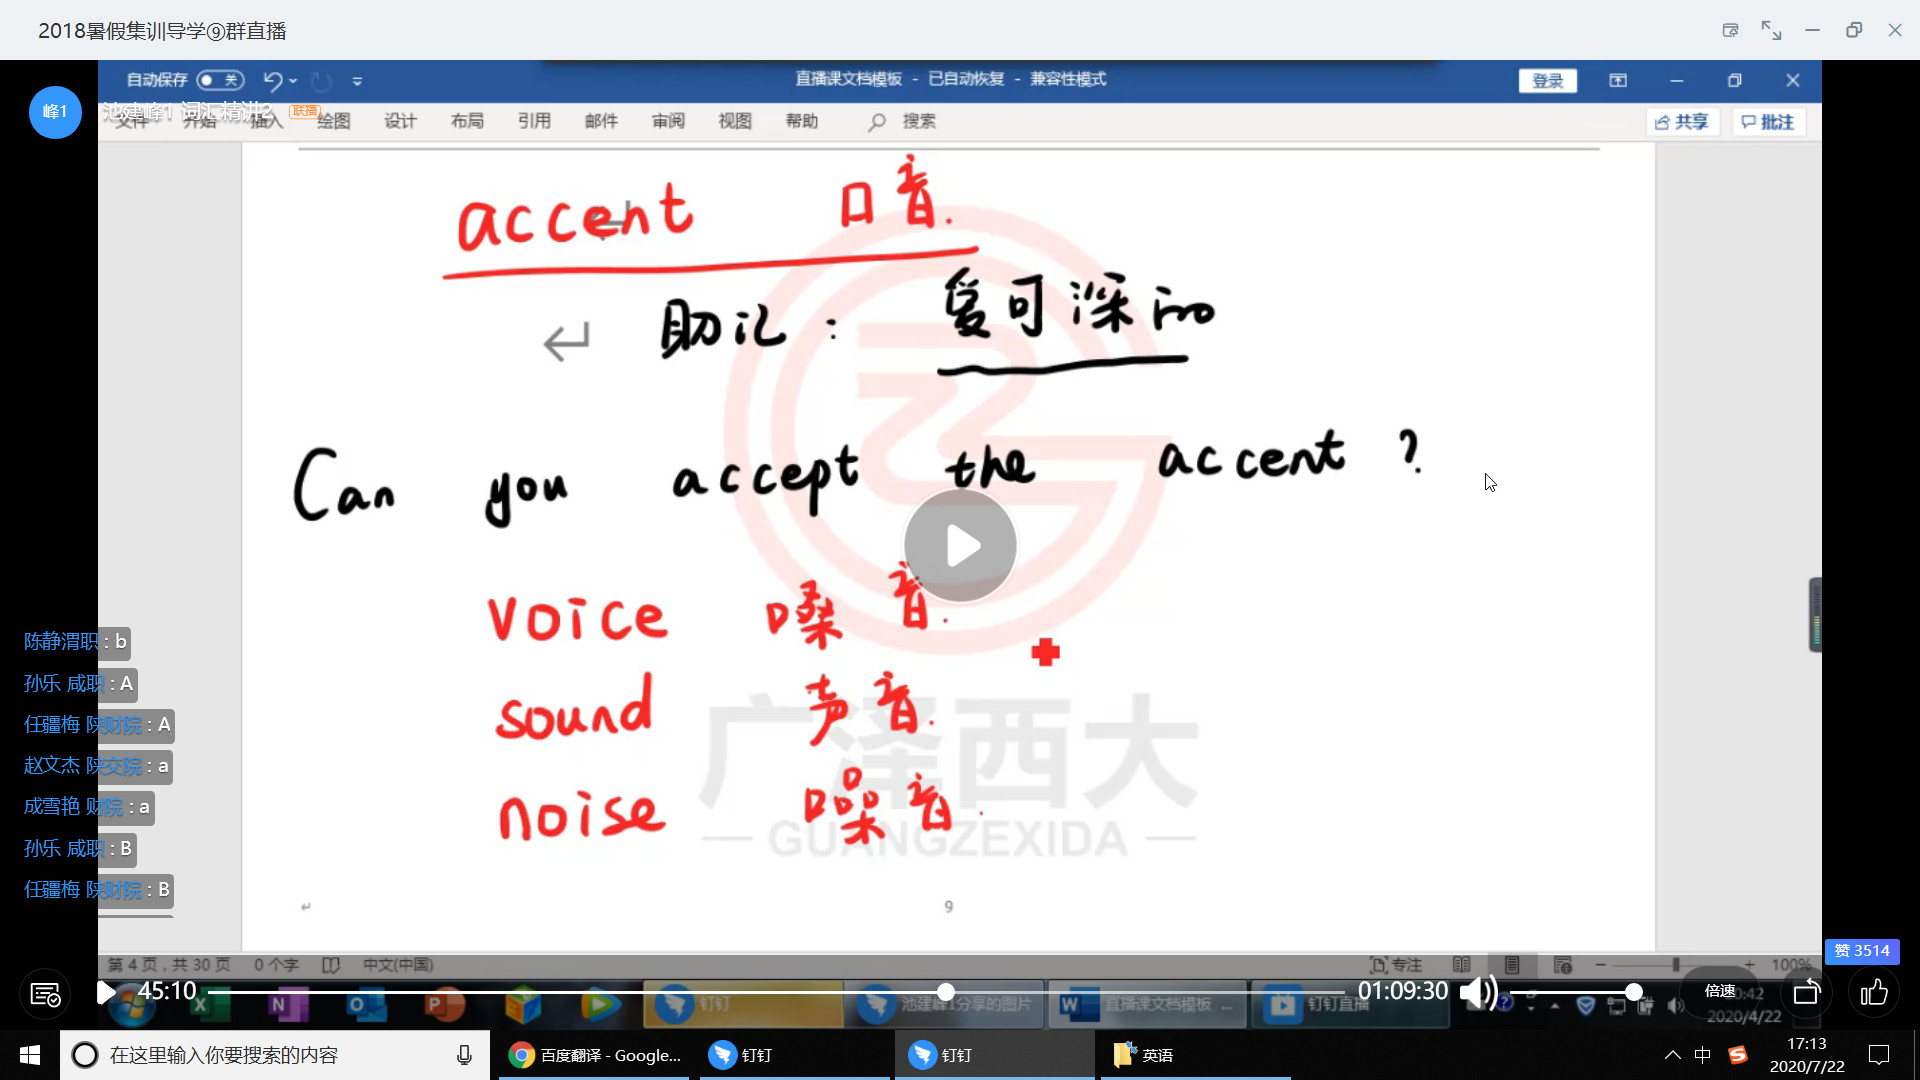 2018暑假集训导学⑨群直播
自动保存 关
直播课文档模板 - 已自动恢复 - 兼容性模式
登录
峰1
池建峰1 词汇精讲2 联播
文件 开始 插入 绘图 设计 布局 引用 邮件 审阅 视图 帮助 搜索
共享 批注
accent 口音.
助记:
Can you accept the accent ?
voice 嗓音.
sound 声音.
noise 噪音.
广泽西大
GUANGZEXIDA
9
陈静渭职 : b
孙乐 咸职 : A
任疆梅 陕财院 : A
赵文杰 陕交院 : a
成雪艳 财院 : a
孙乐 咸职 : B
任疆梅 陕财院 : B
赞 3514
第 4 页，共 30 页 0 个字 中文(中国) 专注 100%
45:10 01:09:30 倍速
钉钉 池建峰1分享的图片 直播课文档模板 ... 钉钉直播
2020/4/22
在这里输入你要搜索的内容
百度翻译 - Google... 钉钉 钉钉 英语
中 17:13
2020/7/22